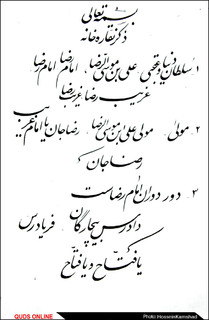 بسمه تعالی
ذکر نقاره خانه
۱ سلطان دنیا و عقبی علی بن موسی الرضا، امام رضا امام رضا
غریب رضا غریب رضا
۲. مولی، مولی علی بن موسی الرضا، رضا جان یا امام غریب
رضا جان
۳. دور دوران امام رضاست
دادرس بیچارگان، فریادرس
یا فتاح و یا فتاح
QUDS ONLINE
Photo:HosseinKamshad